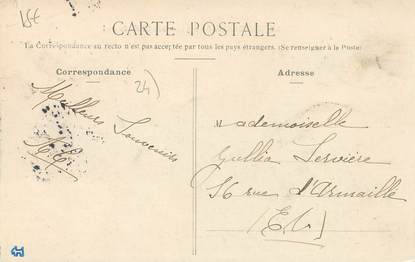 15€
CARTE POSTALE
La Correspondance au recto n'est pas acceptée par tous les pays étrangers. (Se renseigner à la Poste)
Correspondance
24)
Meilleurs
Souvenirs
Adresse
Mademoiselle
Servière
rue d'Armaillé